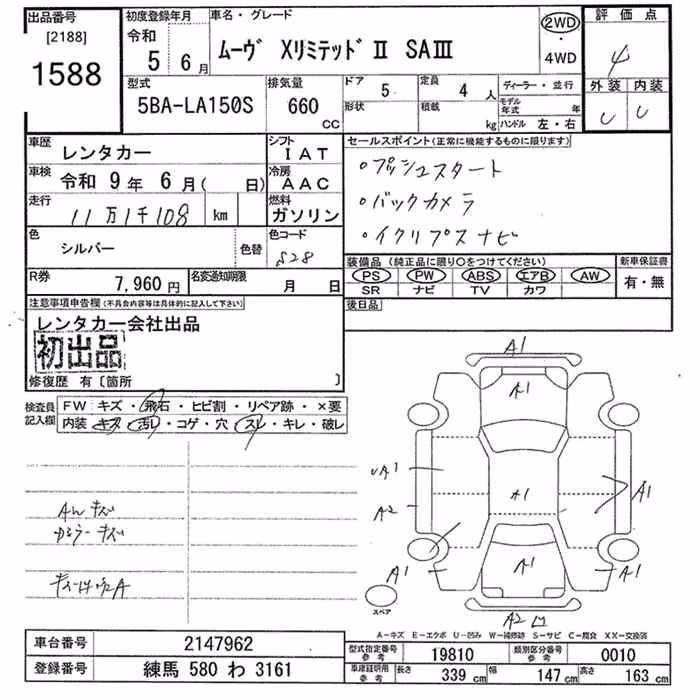 出品番号
[2188]
1588
初度登録年月
令和
5 6月
車名・グレード
ムーヴ XリミテッドⅡ SAⅢ
2WD
・
4WD
評価点
4
外装 内装
型式
5BA-LA150S
排気量
660
cc
ドア 5
定員 4 人
形状
積載 kg
ディーラー・並行
モデル年式 年
ハンドル 左・右
車歴
レンタカー
シフト
IAT
車検 令和 9年 6月( 日)
冷房
AAC
走行
11万1千108 km
燃料
ガソリン
色
シルバー
色替
色コード
S28
R券
7,960円
名変通知期限
月 日
セールスポイント(正常に機能するものに限ります)
・プッシュスタート
・バックカメラ
・イクリプスナビ
装備品(純正品に限り○をつけてください)
PS PW ABS エアB AW
SR ナビ TV カワ
新車保証書
有・無
後日品
注意事項申告欄(不具合内容等は具体的に記入して下さい)
レンタカー会社出品
初出品
修復歴 有〔箇所 〕
検査員記入欄
FW キズ・飛石・ヒビ割・リペア跡・×要
内装 キズ・汚レ・コゲ・穴・スレ・キレ・破レ
A1
A1
A1
A1
A2
A1
A1
A1
A1
A2
スペア
A-キズ E-エクボ U-凹み W-補修跡 S-サビ C-腐食 XX-交換済
車台番号 2147962
登録番号 練馬 580 わ 3161
型式指定番号 参考 19810
類別区分番号 参考 0010
車庫証明用 参考 長さ 339 cm 幅 147 cm 高さ 163 cm